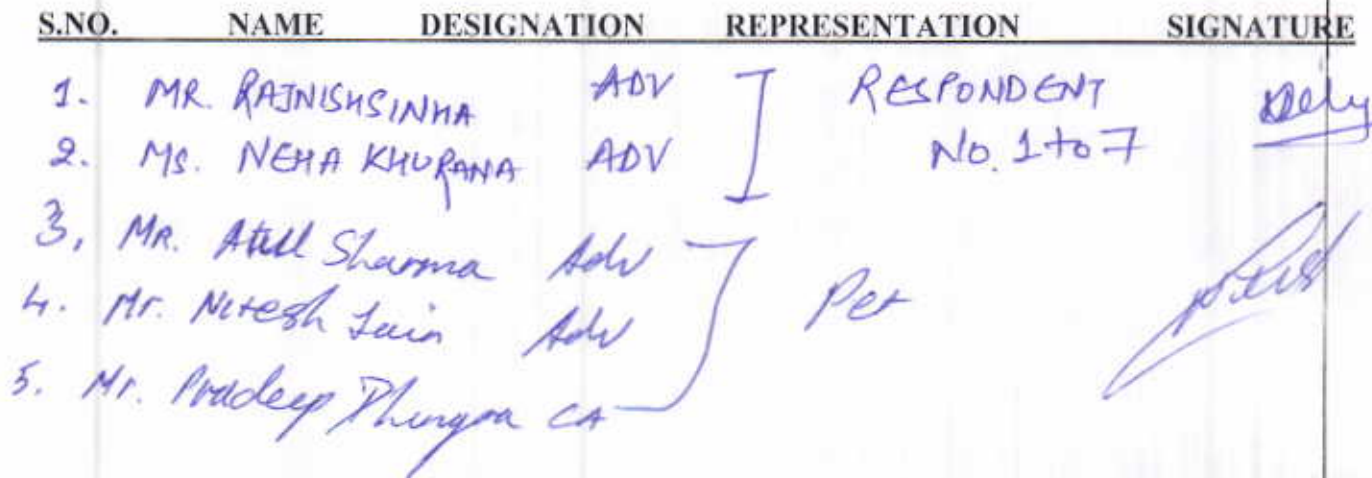 S.NO. NAME DESIGNATION REPRESENTATION SIGNATURE
1. MR. RAJNISHSINHA ADV RESPONDENT
2. MS. NEHA KHURANA ADV No. 1 to 7
3, MR. Atul Sharma Adv
4. Mr. Nitesh Jain Adv Pet
5. Mr. Pradeep Dhingra CA